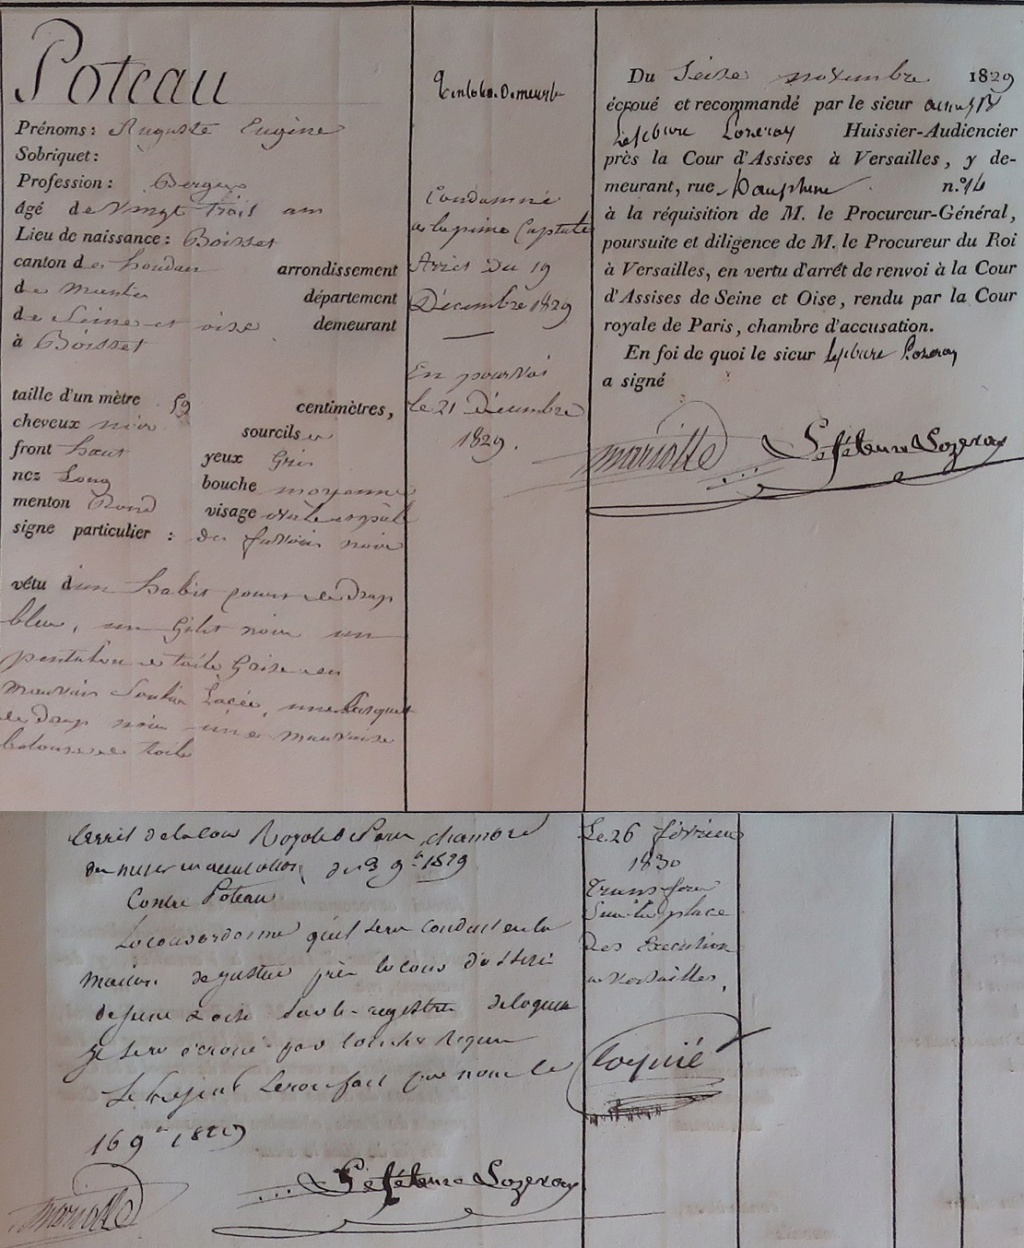 Poteau
Prénoms : Auguste Eugène
Sobriquet :
Profession : Berger
âgé de Vingt trois ans
Lieu de naissance : Boisset
canton de houdan arrondissement
de Mante département
de Seine et oise demeurant
à Boisset
taille d'un mètre 59 centimètres,
cheveux noir sourcils
front haut yeux Gris
nez Long bouche moyenne
menton Rond visage ovale
signe particulier : des favoris noir
vêtu d'un habit de drap
bleu, un Gilet noir un
pantalon de toile Grise
mauvais Soulier Lacée, une Casquette
de drap noir une mauvaise
blouse de toile
Condamné
a la peine Capitale
Arret Du 19
Décembre 1829
En pourvoi
le 21 Décembre
1829.
Du Seize novembre 1829
écroué et recommandé par le sieur
Lefebure Lozeray Huissier-Audiencier
près la Cour d'Assises à Versailles, y de-
meurant, rue Dauphine n.° 14
à la réquisition de M. le Procureur-Général,
poursuite et diligence de M. le Procureur du Roi
à Versailles, en vertu d'arrêt de renvoi à la Cour
d'Assises de Seine et Oise, rendu par la Cour
royale de Paris, chambre d'accusation.
En foi de quoi le sieur Lefebure Lozeray
a signé
Mariotte Lefebure Lozeray
de la Cour Royale de Paris, chambre
des mises en accusation, du 3 9bre 1829
Contre Poteau
La cour ordonne qu'il sera conduit en la
maison de justice près la cour d'assises
de Seine & oise sur le registre de laquelle
il sera écroué par tout huissier Requis
fait par nous le
16 9bre 1829
Mariotte Lefebure Lozeray
Le 26 février
1830
Transféré
Sur la place
Des Execution
a Versailles.